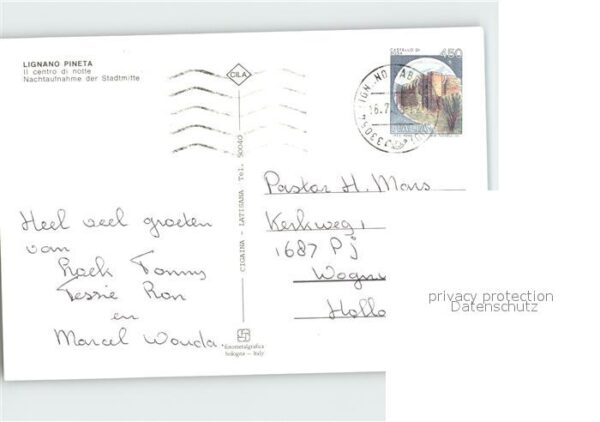 LIGNANO PINETA
Il centro di notte
Nachtaufnahme der Stadtmitte
CILA
CASTELLO DI
450
ITALIA
33054 LIGNANO SABB
16.7
CIGAINA - LATISANA Tel. 50040
Heel veel groeten
van
Roek Tonny
Tessie Ron
en
Marcel Wanda.
Pastor H. Mars
Kerkweg 1
1687 Pj
Wogn
Hollo
fotometalgrafica
bologna - Italy
privacy protection
Datenschutz